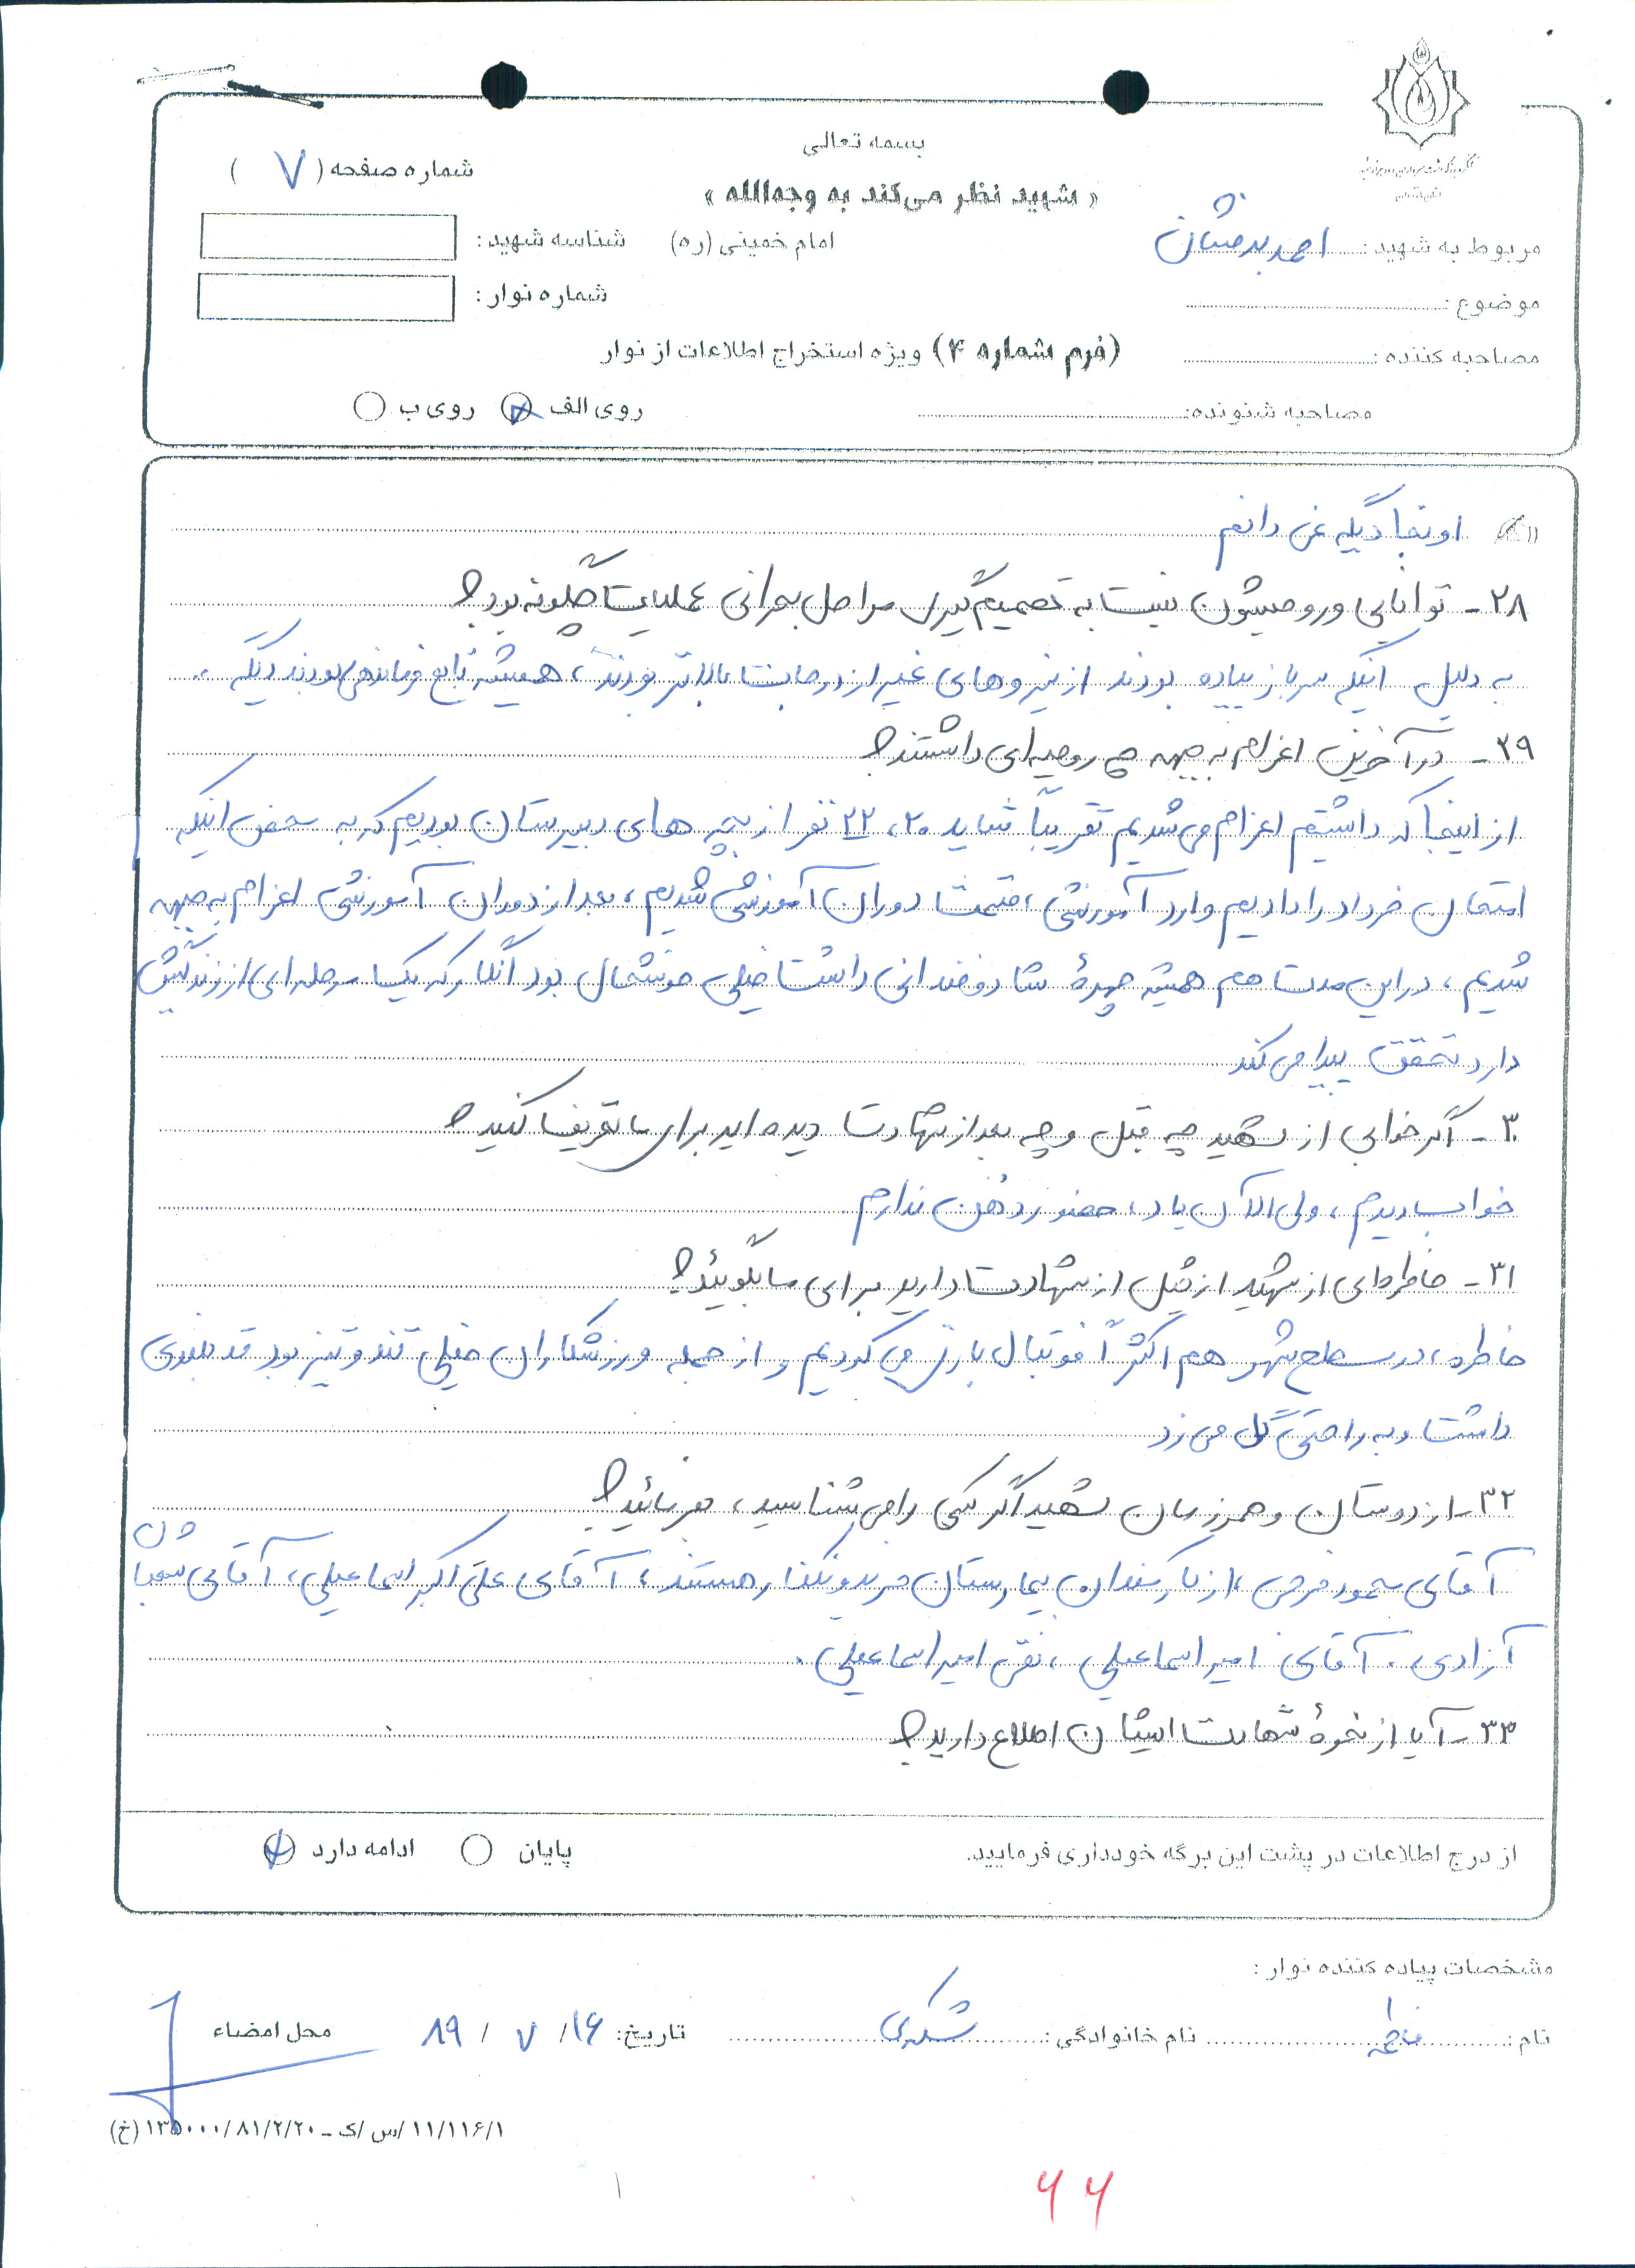 بسمه تعالی
« شهید نظر می‌کند به وجه‌الله »
امام خمینی (ره)
شماره صفحه ( ۷ )
شناسه شهید:
شماره نوار:
مربوط به شهید: احمد
موضوع:
مصاحبه کننده:
(فرم شماره ۴) ویژه استخراج اطلاعات از نوار
مصاحبه شنونده:
روی الف روی ب
اونجا دیگه نمی دانم
۲۸- توانایی و روحیشون نسبت به تصمیم گیری مراحل بحرانی عملیات چگونه بود؟
به دلیل اینکه سرباز پیاده بودند از نیروهای غیر از درجات بالاتر بودند، همیشه تابع فرماندهی بودند دیگه.
۲۹- در آخرین اعزام به جبهه چه روحیه‌ای داشتند؟
از اینجا که داشتیم اعزام می شدیم تقریباً شاید ۲۰، ۲۲ نفر از بچه های دبیرستان بودیم که به محض اینکه
امتحان خرداد را دادیم وارد آموزشی، دوران آموزشی شدیم، بعد از دوران آموزشی اعزام به جبهه
شدیم، در این مدت هم همیشه چهرهٔ شاد و خندانی داشت خیلی خوشحال بود انگار که یک مرحله‌ای از زندگیش
دارد تحقق پیدا می کند
۳۰- اگر خوابی از شهید چه قبل و چه بعد از شهادت دیده اید برای ما تعریف کنید؟
خواب دیدم، ولی الآن یاد، حضور ذهن ندارم.
۳۱- خاطره‌ای از شهید از قبل از شهادت دارید برای ما بگویید؟
خاطره، در سطح شهر هم اکثراً فوتبال بازی می کردیم و از جمله ورزشکاران خیلی تند و تیز بود قد بلندی
داشت و به راحتی گل می زد
۳۲- از دوستان و همرزمان شهید اگر کسی را می شناسید، بفرمائید؟
آقای محمود فرخی، از کارمندان بیمارستان فریدونکنار هستند، آقای علی اکبر اسماعیلی، آقای شعبان
آزادی. آقای امیر اسماعیلی، نقی امیر اسماعیلی.
۳۳- آیا از نحوهٔ شهادت ایشان اطلاع دارید؟
از درج اطلاعات در پشت این برگه خودداری فرمایید.
پایان ادامه دارد
مشخصات پیاده کننده نوار:
نام: فاطمه نام خانوادگی: تاریخ: ۱۶/ ۷ / ۸۹ محل امضاء
۱۱/۱۱۶/۱ /س/ک - ۱۳۵۰۰۰/۸۱/۲/۲۰ (خ)
۶۶